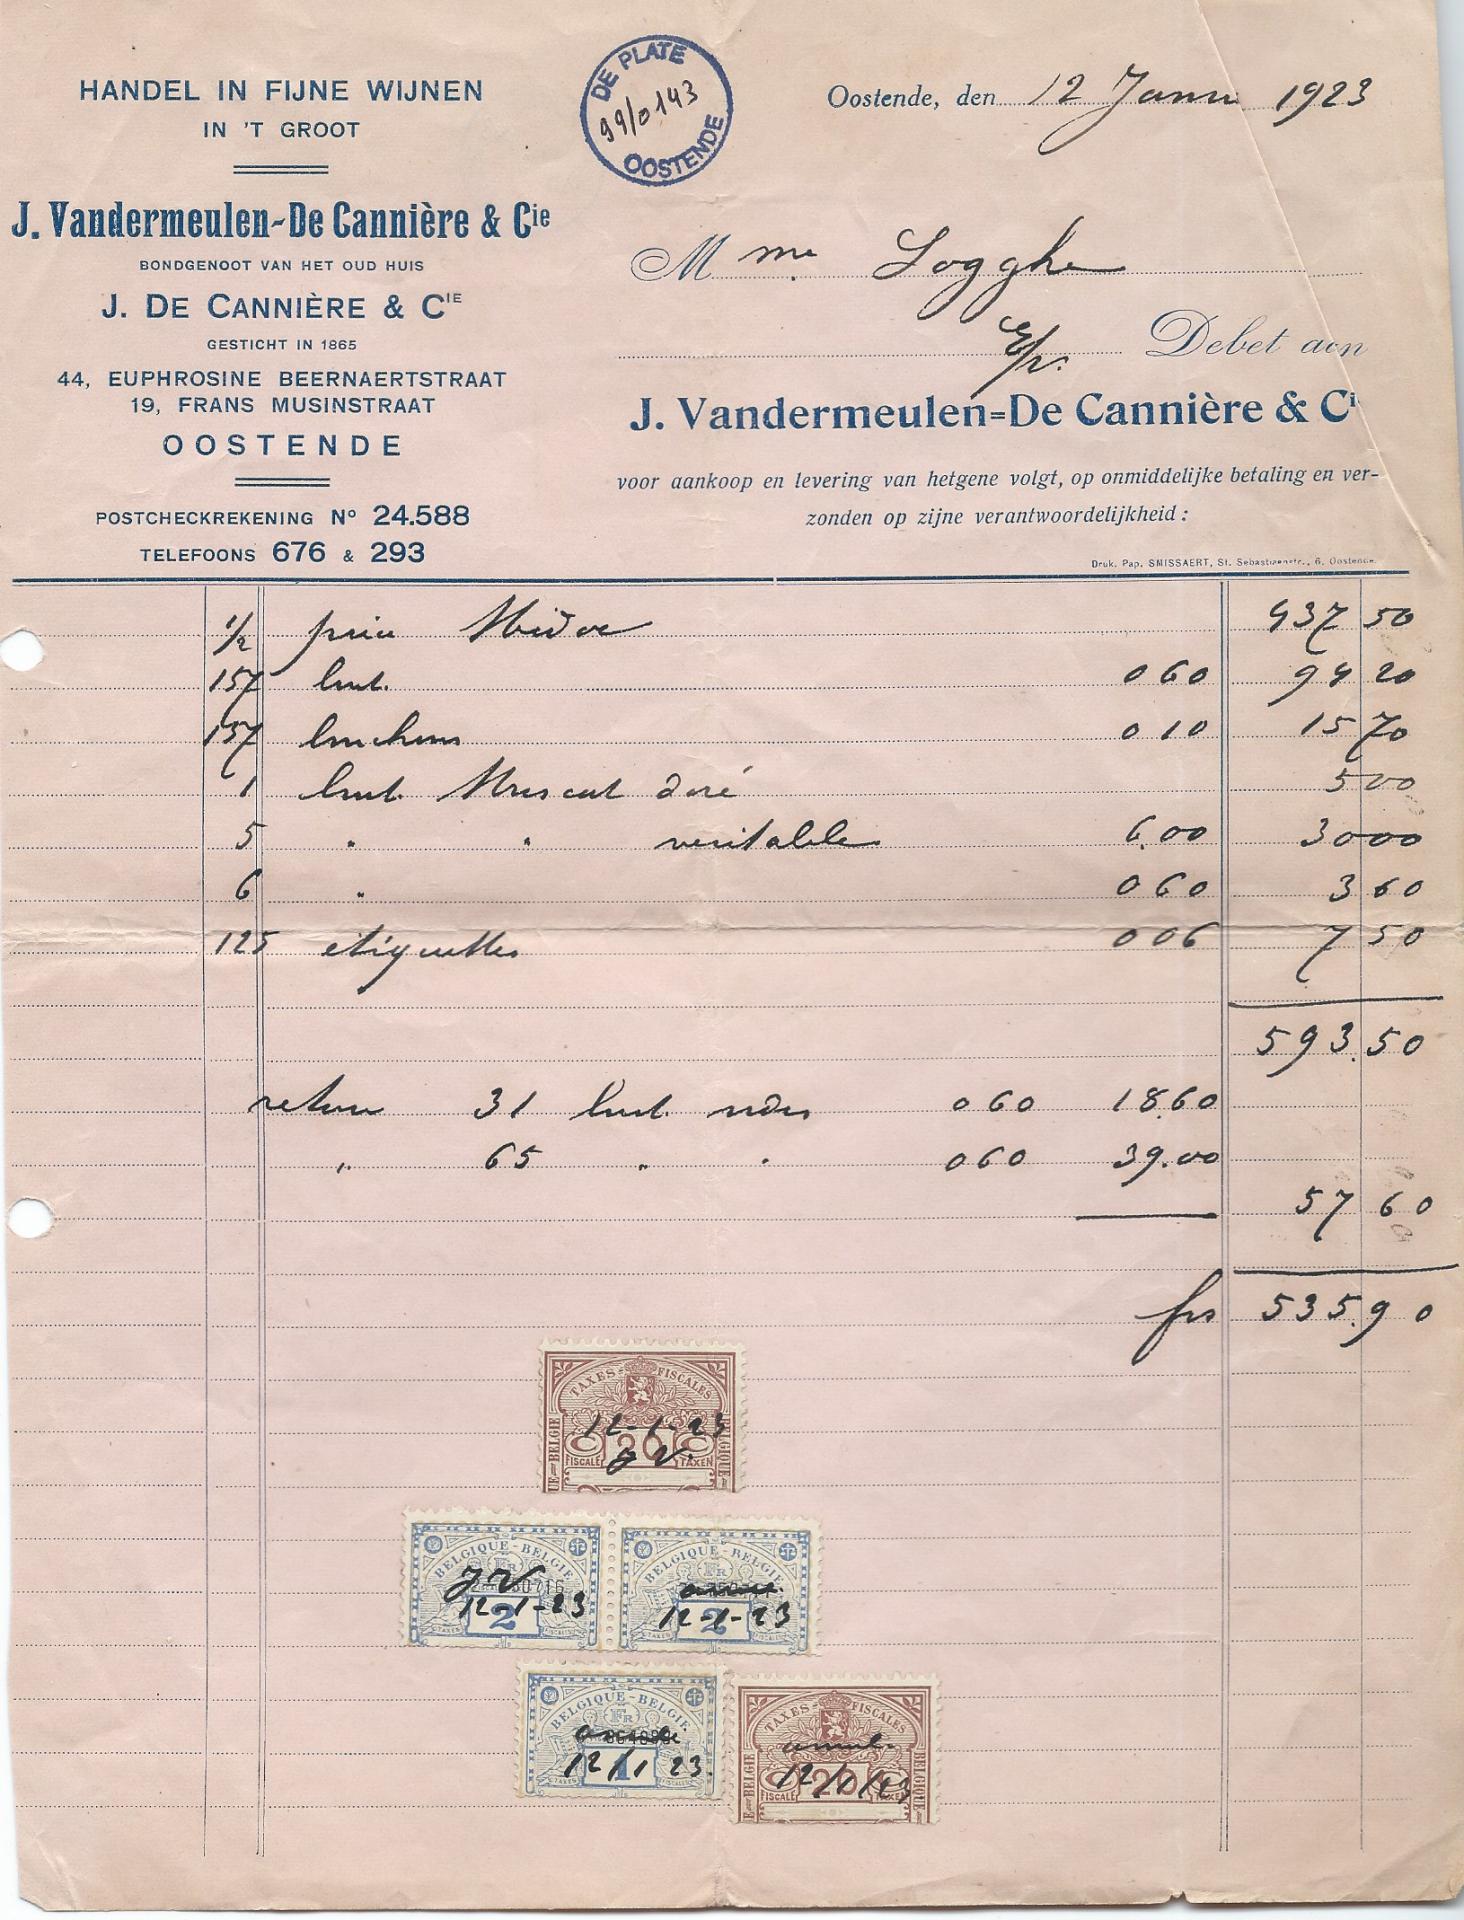 HANDEL IN FIJNE WIJNEN
IN 'T GROOT
J. Vandermeulen-De Cannière & Cie
BONDGENOOT VAN HET OUD HUIS
J. DE CANNIÈRE & CIE
GESTICHT IN 1865
44, EUPHROSINE BEERNAERTSTRAAT
19, FRANS MUSINSTRAAT
OOSTENDE
POSTCHECKREKENING No 24.588
TELEFOONS 676 & 293
DE PLATE
99/0143
OOSTENDE
Oostende, den 12 1923
Mme Logghe
E/v. Debet aan
J. Vandermeulen=De Cannière & Ci
voor aankoop en levering van hetgene volgt, op onmiddelijke betaling en ver-
zonden op zijne verantwoordelijkheid :
Druk. Pap. SMISSAERT, St. Sebastiaanstr., 6, Oostende.
1/2 437 50
157 bout. 0 60 94 20
157 bouchons 0 10 15 70
1 bout. Muscat doré 5 00
5 " " veritable 6.00 30 00
6 " 0 60 3 60
125 etiquettes 0 06 7 50
593.50
retour 31 bout. vides 0 60 18.60
" 65 " " 0 60 39.00
57 60
frs 535.90
TAXES FISCALES
12-1-23
20
JV.
FISCALE TAXEN
BELGIE BELGIQUE
BELGIQUE-BELGIE
FR
JV
12-1-23
2
BELGIQUE-BELGIE
FR
12-1-23
2
BELGIQUE-BELGIE
FR
12/1 23.
1
TAXES FISCALES
annul.
12/1/23
20
FISCALE TAXEN
BELGIE BELGIQUE